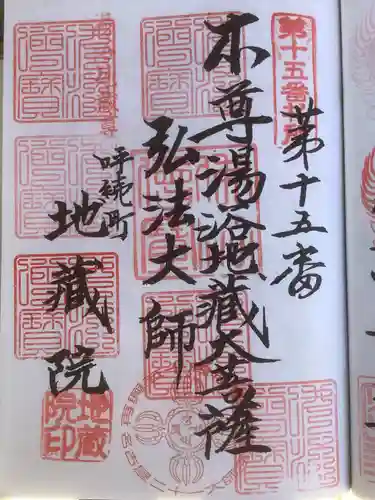 第十五番
本尊湯浴地蔵大菩薩
弘法大師
呼続町
地蔵院
第十五番
佛法僧寶
地蔵院印